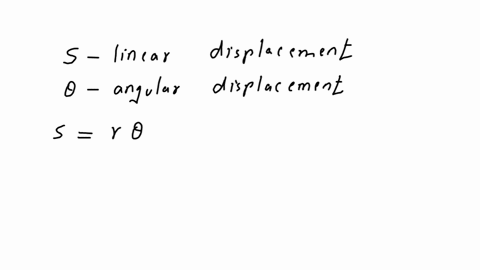 S - linear displacement
θ - angular displacement
S = r θ